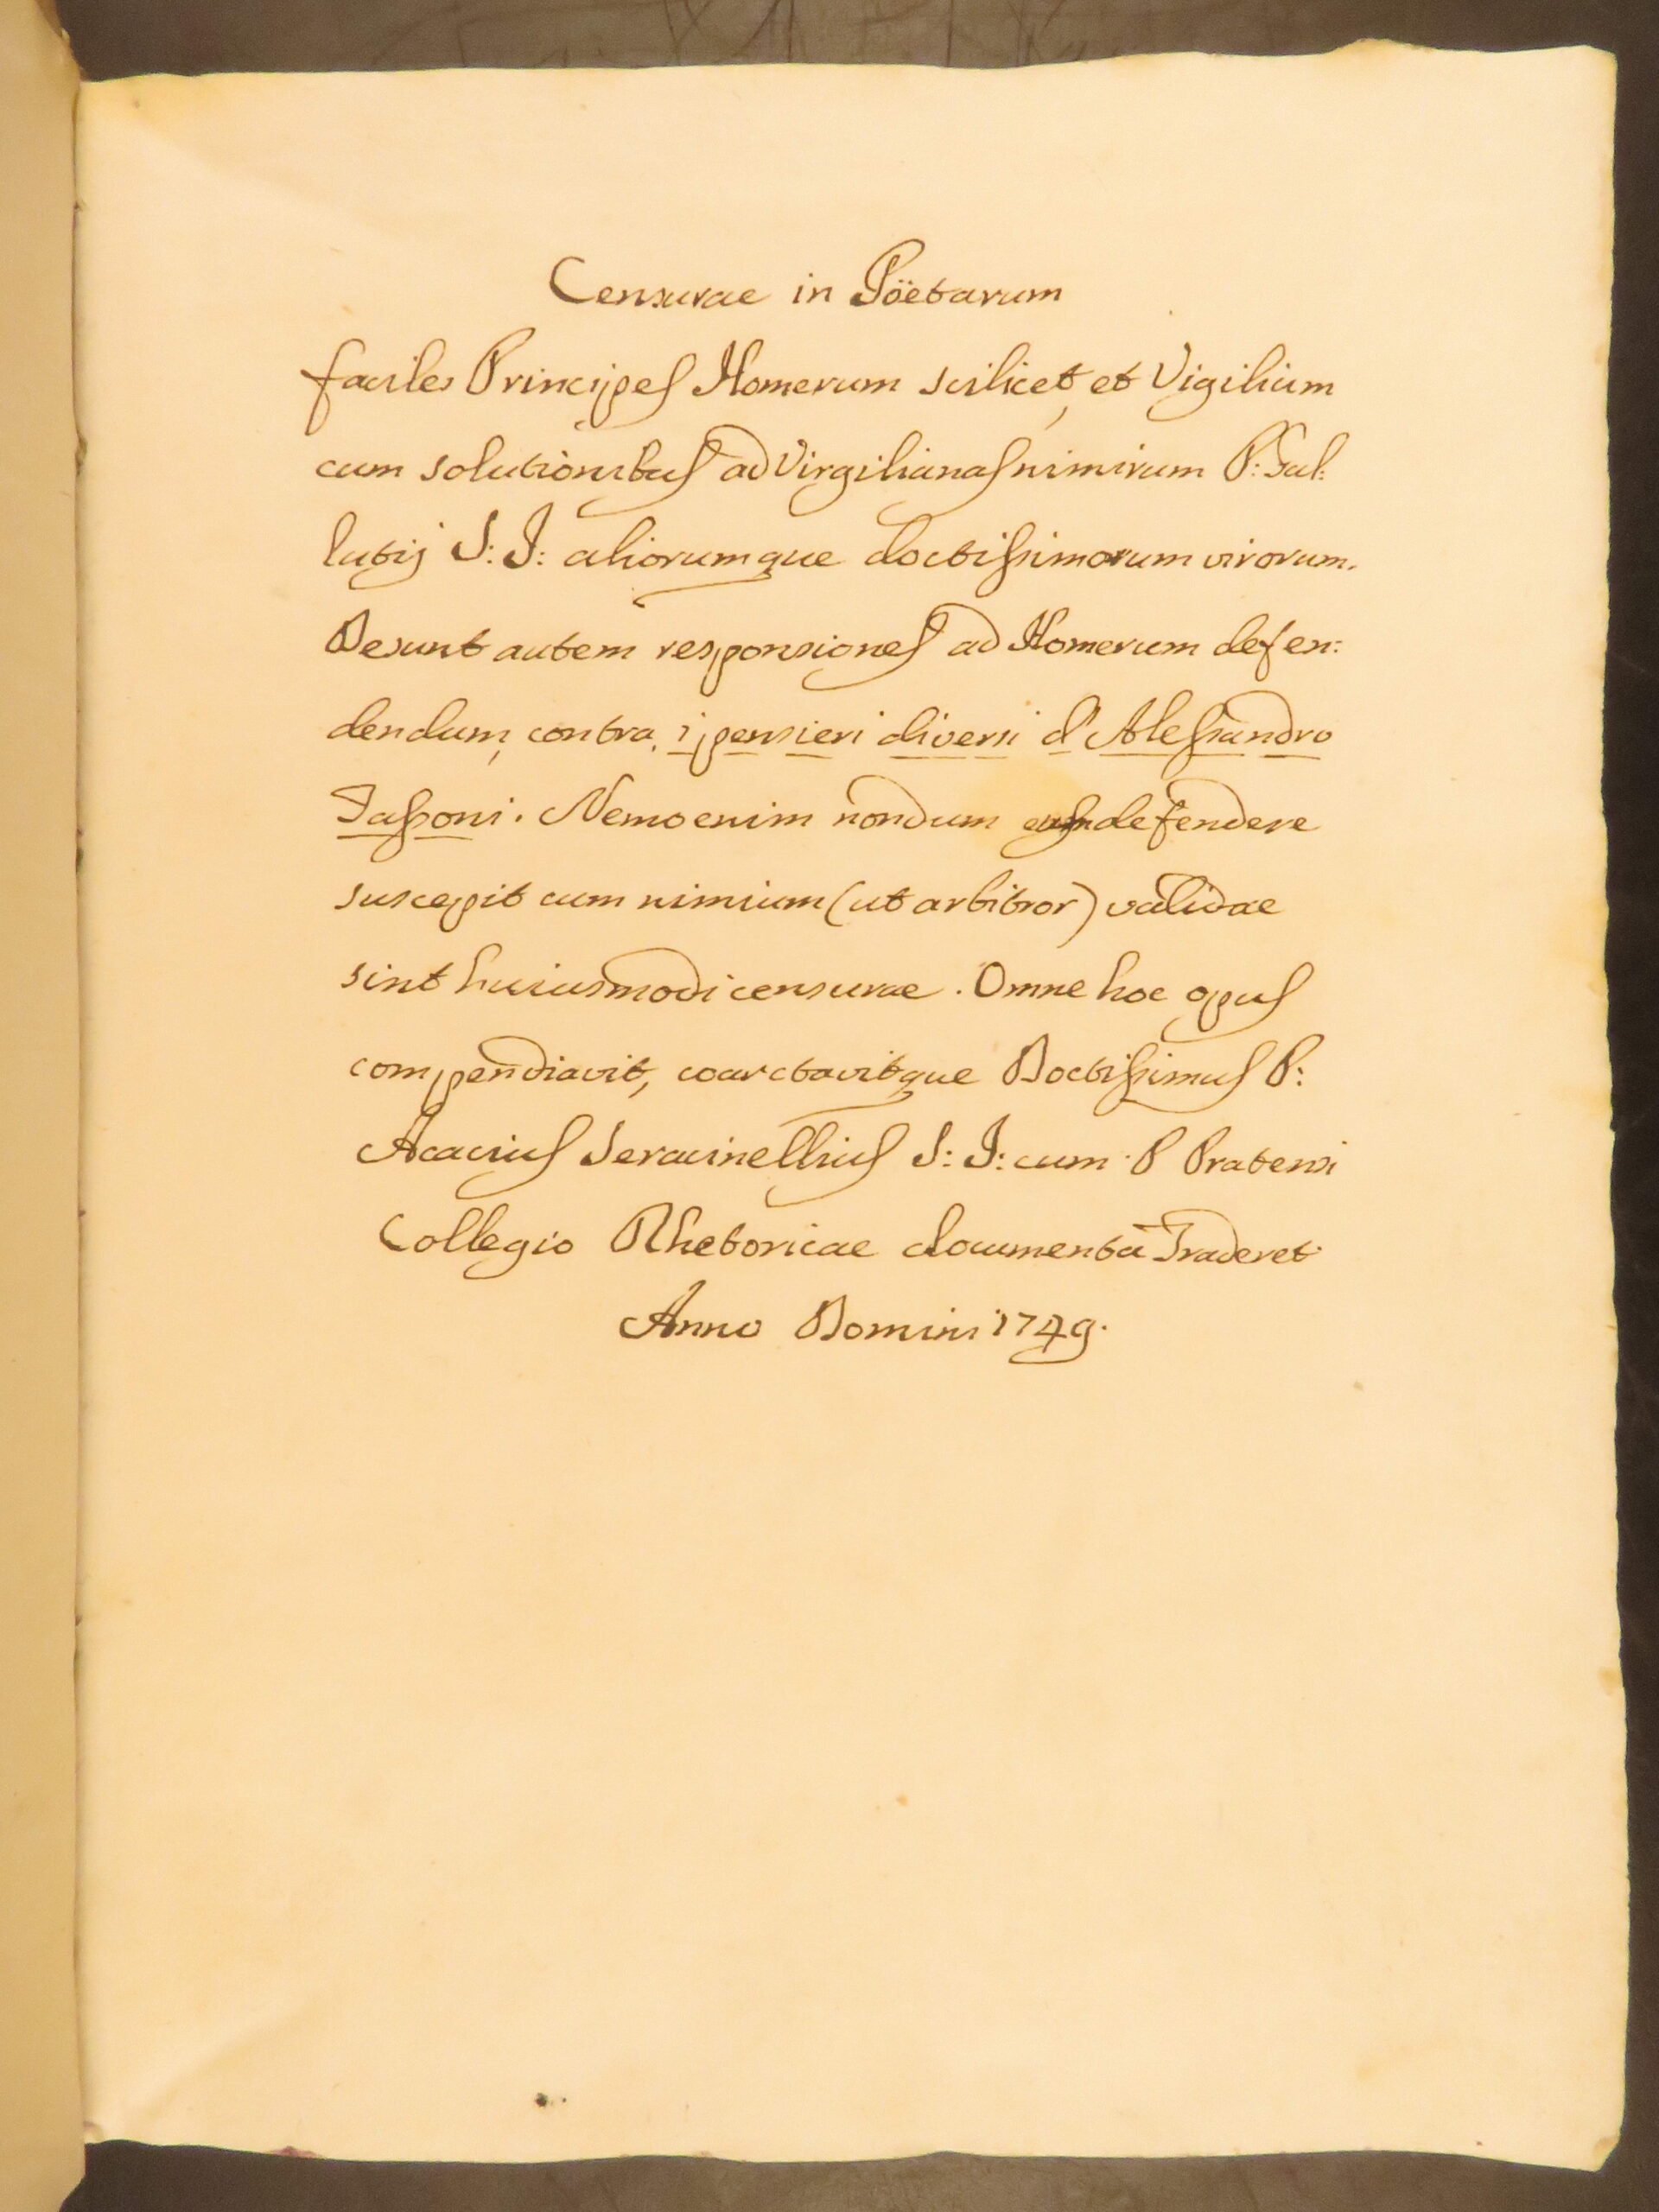 Censurae in Pöetarum
faciles Principes Homerum scilicet, et Vigilium
cum solutionibus ad Virgilianas nimirum P: Gal:
lutij S: J: aliorumque doctissimorum virorum.
Desunt autem responsiones ad Homerum defen:
dendum, contra, i pensieri diversi d'Alessandro
Tassoni. Nemo enim nondum defendere
suscepit cum nimium (ut arbitror) validae
sint huiusmodi censurae. Omne hoc opus
compendiavit, coarctavitque Doctissimus P:
Acacius Seracinellius S: J: cum P Pratensi
Collegio Rhetoricae documenta Traderet
Anno Domini 1749.